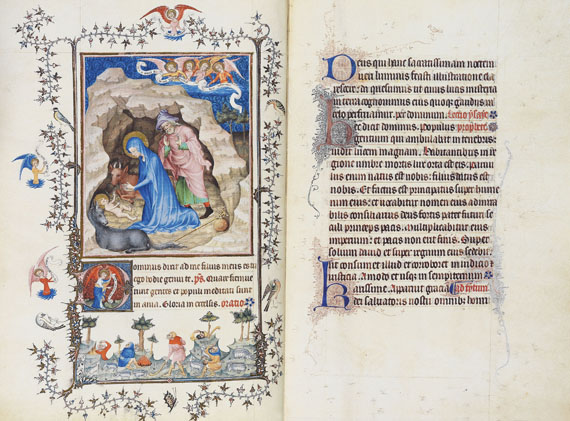 Dominus dixit ad me filius meus es tu
ego hodie genui te. ps. Quare fremue
runt gentes et populi meditati sunt
in ania. Gloria in excelsis. oratio
Deus qui hanc sacratissimam noctem
veri luminis fecisti illustratione cla
rescere: da quesumus ut cuius lucis misteria
in terra cognovimus eius quoque gaudiis in
celo perfruamur. per dominum. Lectio ysaie
Hec dicit dominus. Populus prophete
gentium qui ambulabat in tenebris:
vidit lucem magnam. Habitantibus in re
gione umbre mortis lux orta est eis. parvu
lus enim natus est nobis: filius datus est
nobis. Et factus est principatus super hume
rum eius: et vocabitur nomen eius admira
bilis consiliarius deus fortis pater futuri se
culi princeps pacis. Multiplicabitur eius
imperium: et pacis non erit finis. Super
solium david et super regnum eius sedebit:
ut confirmet illud et corroboret in iudicio et
iusticia. Amodo et usque in sempiternum
Karissime. Apparuit gracia Ad tytum
dei salvatoris nostri omnibus homi